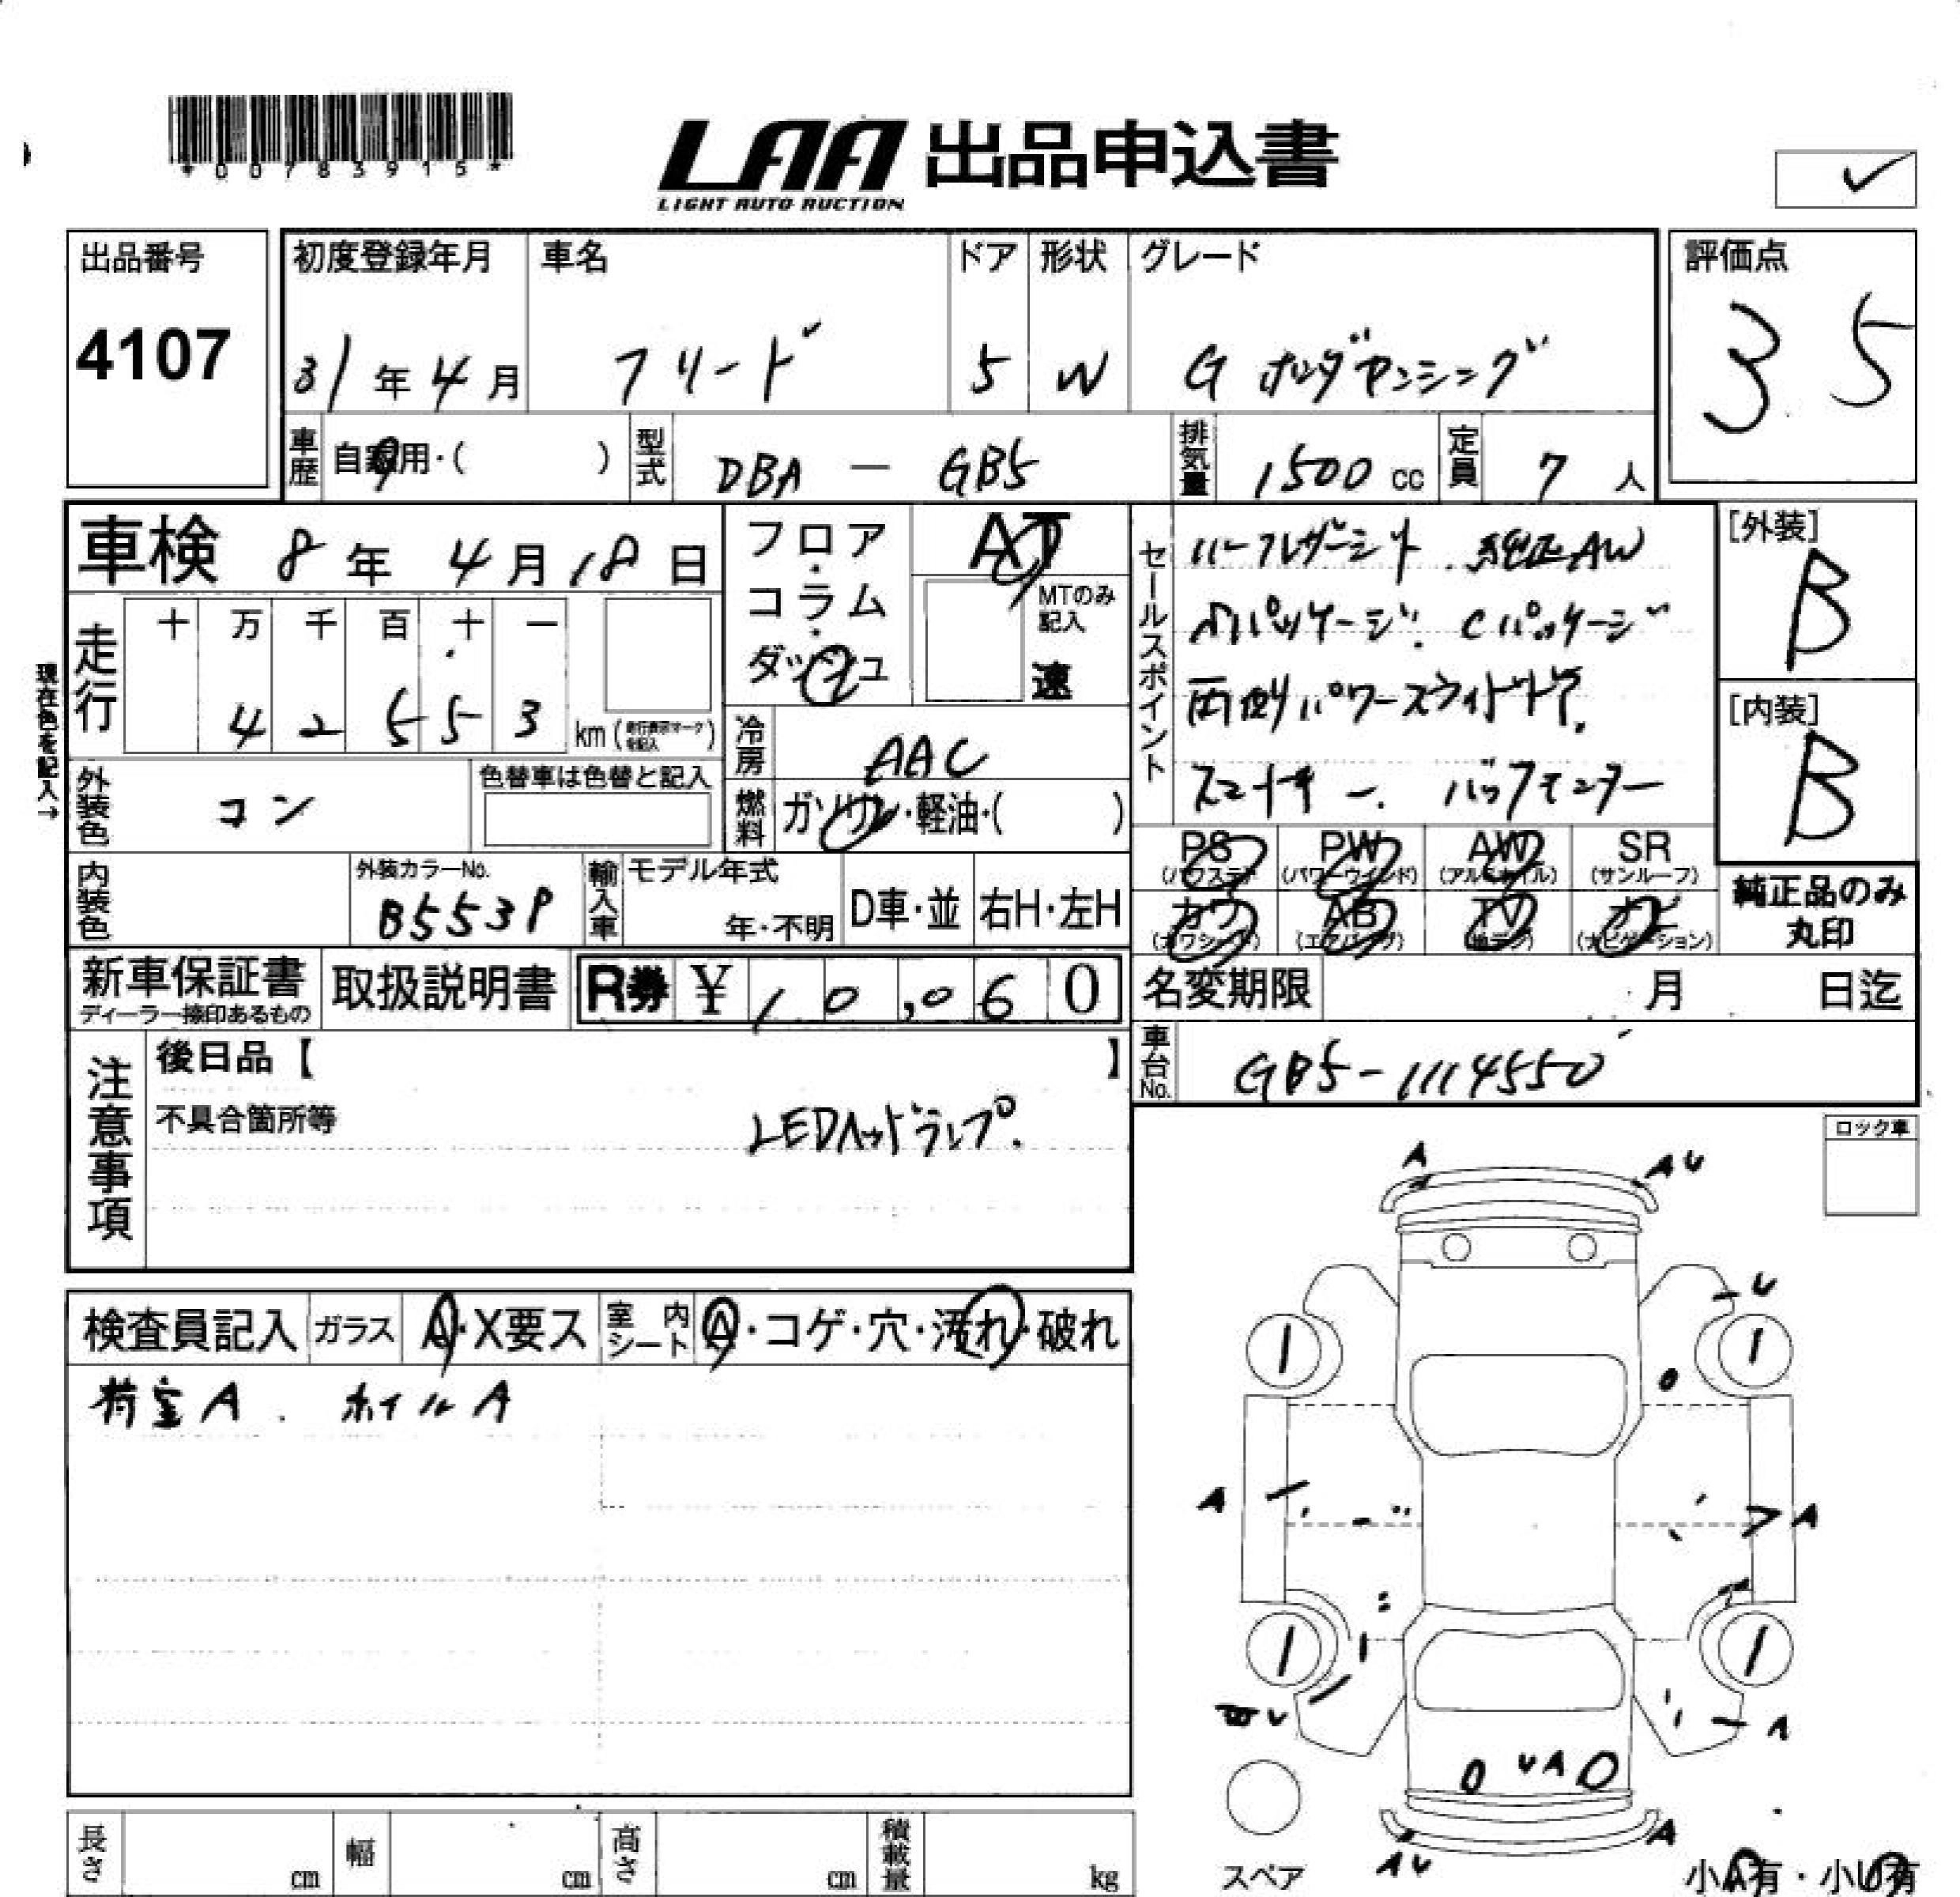 *00783915*
LAA 出品申込書
LIGHT AUTO AUCTION
出品番号
4107
初度登録年月
31年4月
車名
フリード
ドア
5
形状
W
グレード
G ホンダセンシング
評価点
3.5
車歴 自家用・( )
型式 DBA - GB5
排気量 1500 cc
定員 7 人
車検 8年4月18日
フロア・コラム・ダッシュ
AT
MTのみ記入
速
セールスポイント
ハーフレザーシート. 純正AW
Cパッケージ
両側パワースライドドア.
スマートキー. バックモニター
[外装]
B
[内装]
B
現在色を記入→
走行
十 万 千 百 十 一
4 2 5 5 3 km(走行表示マークを記入)
冷房 AAC
燃料 ガソリン・軽油・( )
外装色 コン
色替車は色替と記入
内装色
外装カラーNo.
B553P
輸入車
モデル年式
年・不明
D車・並
右H・左H
PS (パワステ)
PW (パワーウインド)
AW (アルミホイル)
SR (サンルーフ)
カワ (カワシート)
AB (エアバッグ)
TV (地デジ)
ナビ (ナビゲーション)
純正品のみ丸印
新車保証書
ディーラー捺印あるもの
取扱説明書
R券 ¥10,060
名変期限 月 日迄
車台No. GB5-1114550
注意事項
後日品【 】
不具合箇所等
LEDヘッドランプ.
ロック車
検査員記入
ガラス A・X要ス
室内シート A・コゲ・穴・汚れ・破れ
荷室A. ホイルA
A
AU
U
A
A
U
A
UA
AU
A
スペア
小A有・小U有
長さ cm
幅 cm
高さ cm
積載量 kg